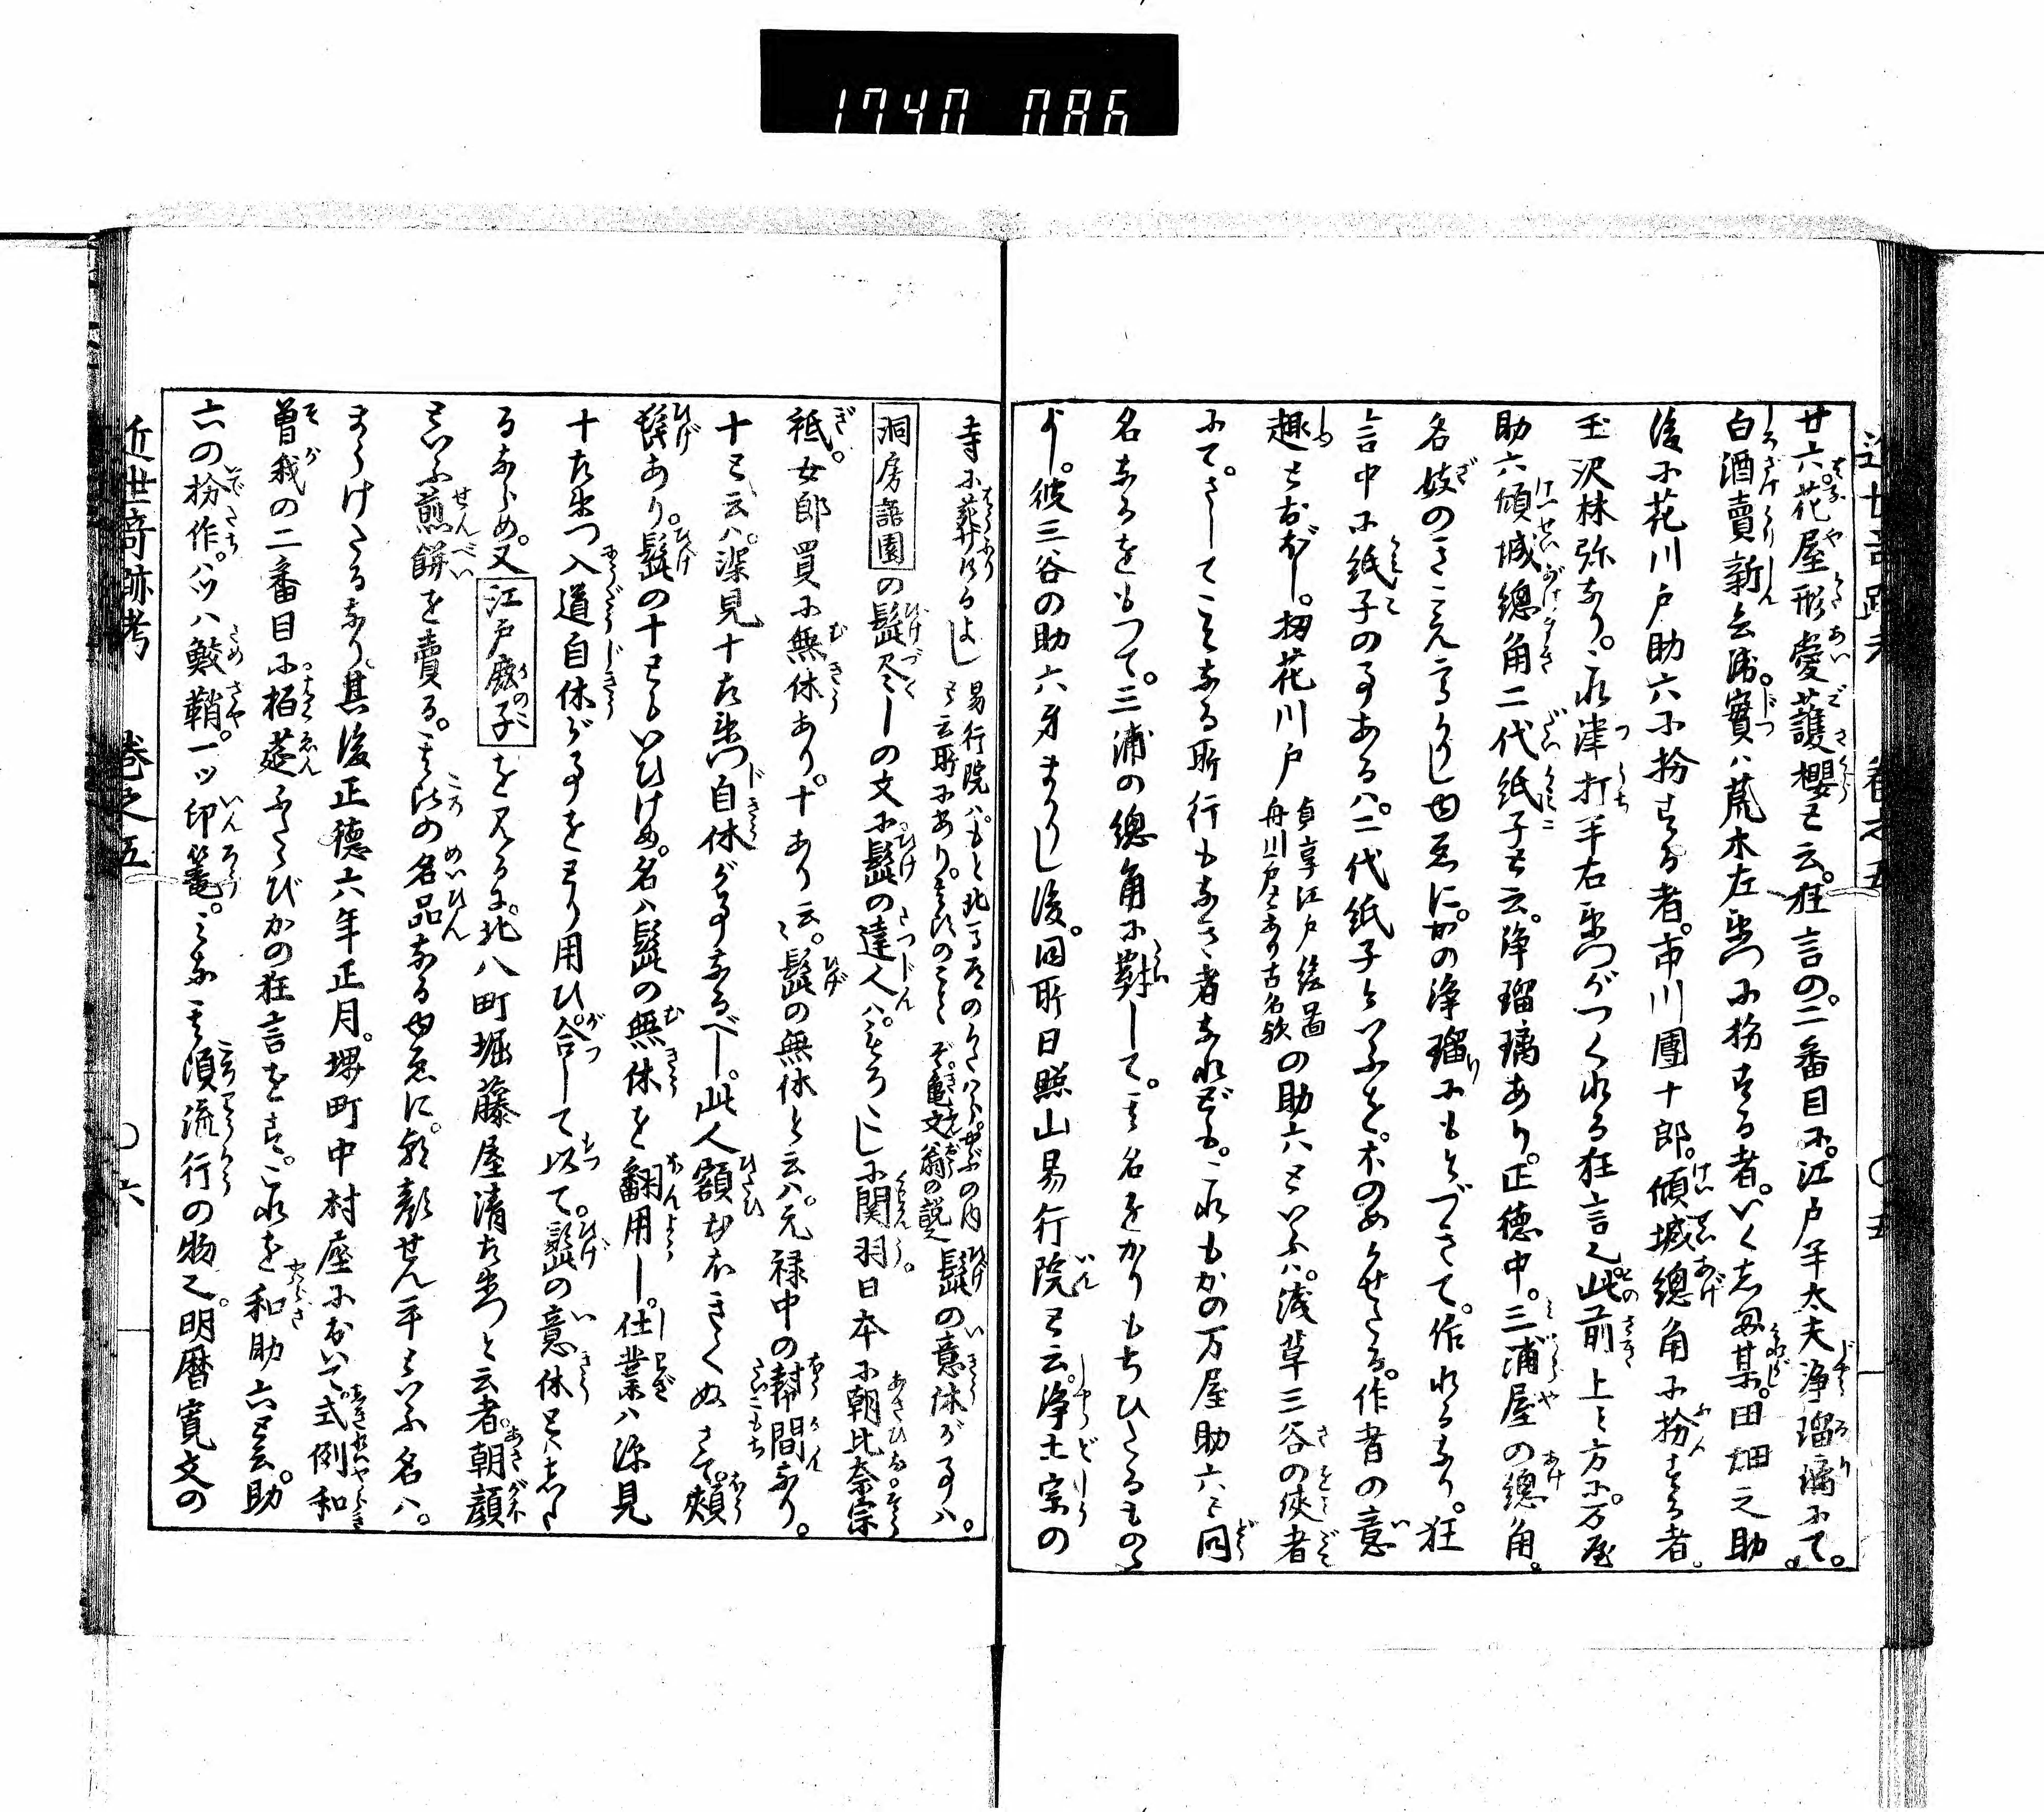 1740 086
近世奇跡考 巻之五 〇五
廿六。花屋形愛護櫻と云。狂言の。二番目に。江戸半太夫浄瑠璃にて。
白酒賣新兵衛。實ハ荒木左衛門に扮する者。いくしま某。田畑之助
後に花川戸助六に扮する者。市川團十郎。傾城總角に扮する者。
玉沢林弥なり。これ津打半右衛門がつくれる狂言也。此前上方に。万屋
助六傾城總角二代紙子と云。浄瑠璃あり。正徳中。三浦屋の總角。
名妓のきこえ高かりしゆゑに。かの浄瑠りにもとづきて。作れるなり。狂
言中に紙子の事あるハ。二代紙子といふを。木のめかせたる。作者の意
趣とおぼし。扨花川戸 貞享江戸絵圖舟川戸とあり古名歟 の助六といふハ。浅草三谷の侠者
にて。さしてことなる所行もなき者なれども。これもかの万屋助六と同
名なるをもつて。三浦の總角に對して。其名をかりもちひたるものゝ
よし。彼三谷の助六身まかりし後。同所日照山易行院と云。浄土宗の
寺に葬りけるよし 易行院ハ。もと北馬道のかたハら。やぶの内と云所にあり。其頃のことぞ。亀文翁の説也 髭の意休が事ハ。
洞房語園の髭尽しの文に髭の達人ハ。そろこしに関羽日本に朝比奈宗
祇。女郎買に無休あり。十あり云〻。髭の無休と云ハ。元禄中の幇間なり。
十と云ハ。深見十左衛門自休が事なるべし。此人額むねきくぬきて。頬
髭あり。髭の十ともいひけめ。名ハ髭の無休を翻用し。仕業ハ深見
十左衛門入道自休が事をとり用ひ。合して以て。髭の意休とハした
るならめ。又江戸鹿子を見るに。北八町堀藤屋清左衛門と云者。朝顔
といふ煎餅を賣る。其比の名品なるゆゑに。朝顔せん平といふ名ハ。
まうけたるなり。其後正徳六年正月。堺町中村座において。式例和
曽我の二番目に。栢莚ふたゝびかの狂言をす。これを和助六と云。助
六の扮作。八ツハ鮫鞘。一ツ印篭。みな其頃流行の物也。明暦寛文の
近世奇跡考 巻之五 〇六